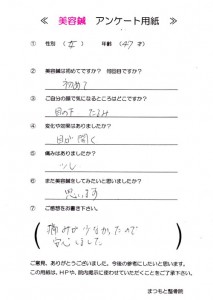 ≪ 美容鍼 アンケート用紙 ≫
① 性別 ( 女 ) 年齢 ( 47 才 )
② 美容鍼は初めてですか? 何回目ですか?
初めて
③ ご自分の顔で気になるところはどこですか?
目の下 たるみ
④ 変化や効果はありましたか?
目が開く
⑤ 痛みはありましたか?
少し
⑥ また美容鍼をしてみたいと思いましたか?
思います
⑦ ご感想をお書き下さい。
痛みが少なかったので
安心しました
ご意見、ありがとうございました。今後の参考にしたいと思います。
この用紙は、HPや、院内掲示に使わせていただくことをご了承下さい。
まつもと整骨院